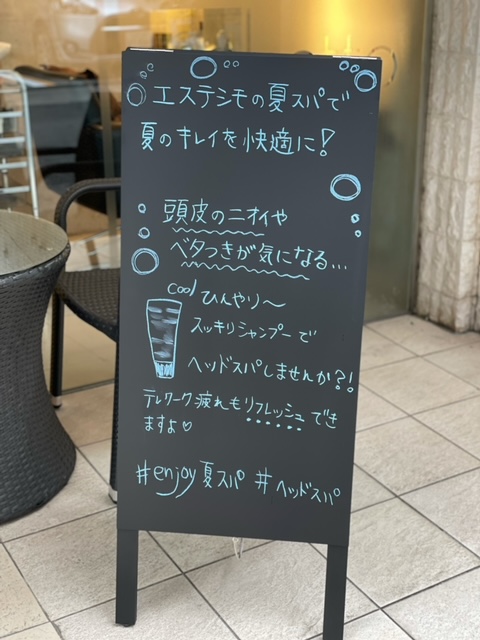 エステシモの夏スパで
夏のキレイを快適に!
頭皮のニオイや
ベタつきが気になる...
cool ひんやり〜
スッキリシャンプーで
ヘッドスパしませんか?!
テレワーク疲れもリフレッシュでき
ますよ♡
#enjoy夏スパ #ヘッドスパ